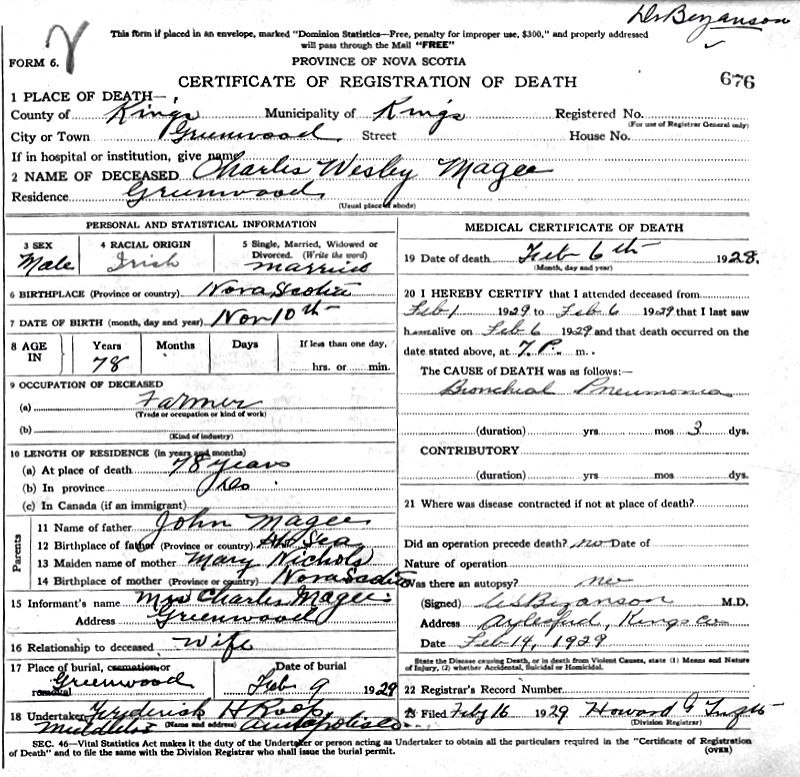 Dr Bezanson
This form if placed in an envelope, marked "Dominion Statistics—Free, penalty for improper use, $300," and properly addressed
will pass through the Mail "FREE"
FORM 6.
PROVINCE OF NOVA SCOTIA
CERTIFICATE OF REGISTRATION OF DEATH
676
1 PLACE OF DEATH—
County of Kings Municipality of Kings Registered No.
(For use of Registrar General only)
City or Town Greenwood Street House No.
If in hospital or institution, give name
2 NAME OF DECEASED Charles Wesley Magee
Residence Greenwood
(Usual place of abode)
PERSONAL AND STATISTICAL INFORMATION
3 SEX 4 RACIAL ORIGIN 5 Single, Married, Widowed or
Divorced. (Write the word)
Male Irish married
6 BIRTHPLACE (Province or country) Nova Scotia
7 DATE OF BIRTH (month, day and year) Nov 10th
8 AGE IN Years Months Days If less than one day,
78 hrs. or min.
9 OCCUPATION OF DECEASED
(a) Farmer
(Trade or occupation or kind of work)
(b)
(Kind of industry)
10 LENGTH OF RESIDENCE (in years and months)
(a) At place of death 78 years
(b) In province Do
(c) In Canada (if an immigrant)
Parents
11 Name of father John Magee
12 Birthplace of father (Province or country) Sea
13 Maiden name of mother Mary Nichols
14 Birthplace of mother (Province or country) Nova Scotia
15 Informant's name Mrs Charles Magee
Address Greenwood
16 Relationship to deceased Wife
17 Place of burial, cremation or removal Date of burial
Greenwood Feb 9 1929
18 Undertaker Frederick H Roop
(Name and address)
MEDICAL CERTIFICATE OF DEATH
19 Date of death Feb 6th 1928.
(Month, day and year)
20 I HEREBY CERTIFY that I attended deceased from
Feb 1 1929 to Feb 6 1929 that I last saw
him alive on Feb 6 1929 and that death occurred on
date stated above, at 7 P. m.
The CAUSE of DEATH was as follows:—
Bronchial Pneumonia
(duration) yrs mos 3 dys.
CONTRIBUTORY
(duration) yrs mos dys.
21 Where was disease contracted if not at place of death?
Did an operation precede death? no Date of
Nature of operation
Was there an autopsy? no
(Signed) Bezanson M.D.
Address Aylesford, Kings Co
Date Feb 14, 1929
State the Disease causing Death, or in death from Violent Causes, state (1) Means and Nature
of Injury, (2) whether Accidental, Suicidal or Homicidal.
22 Registrar's Record Number
23 Filed Feby 16 1929 Howard
(Division Registrar)
SEC. 46—Vital Statistics Act makes it the duty of the Undertaker or person acting as Undertaker to obtain all the particulars required in the "Certificate of Registration
of Death" and to file the same with the Division Registrar who shall issue the burial permit. (OVER)